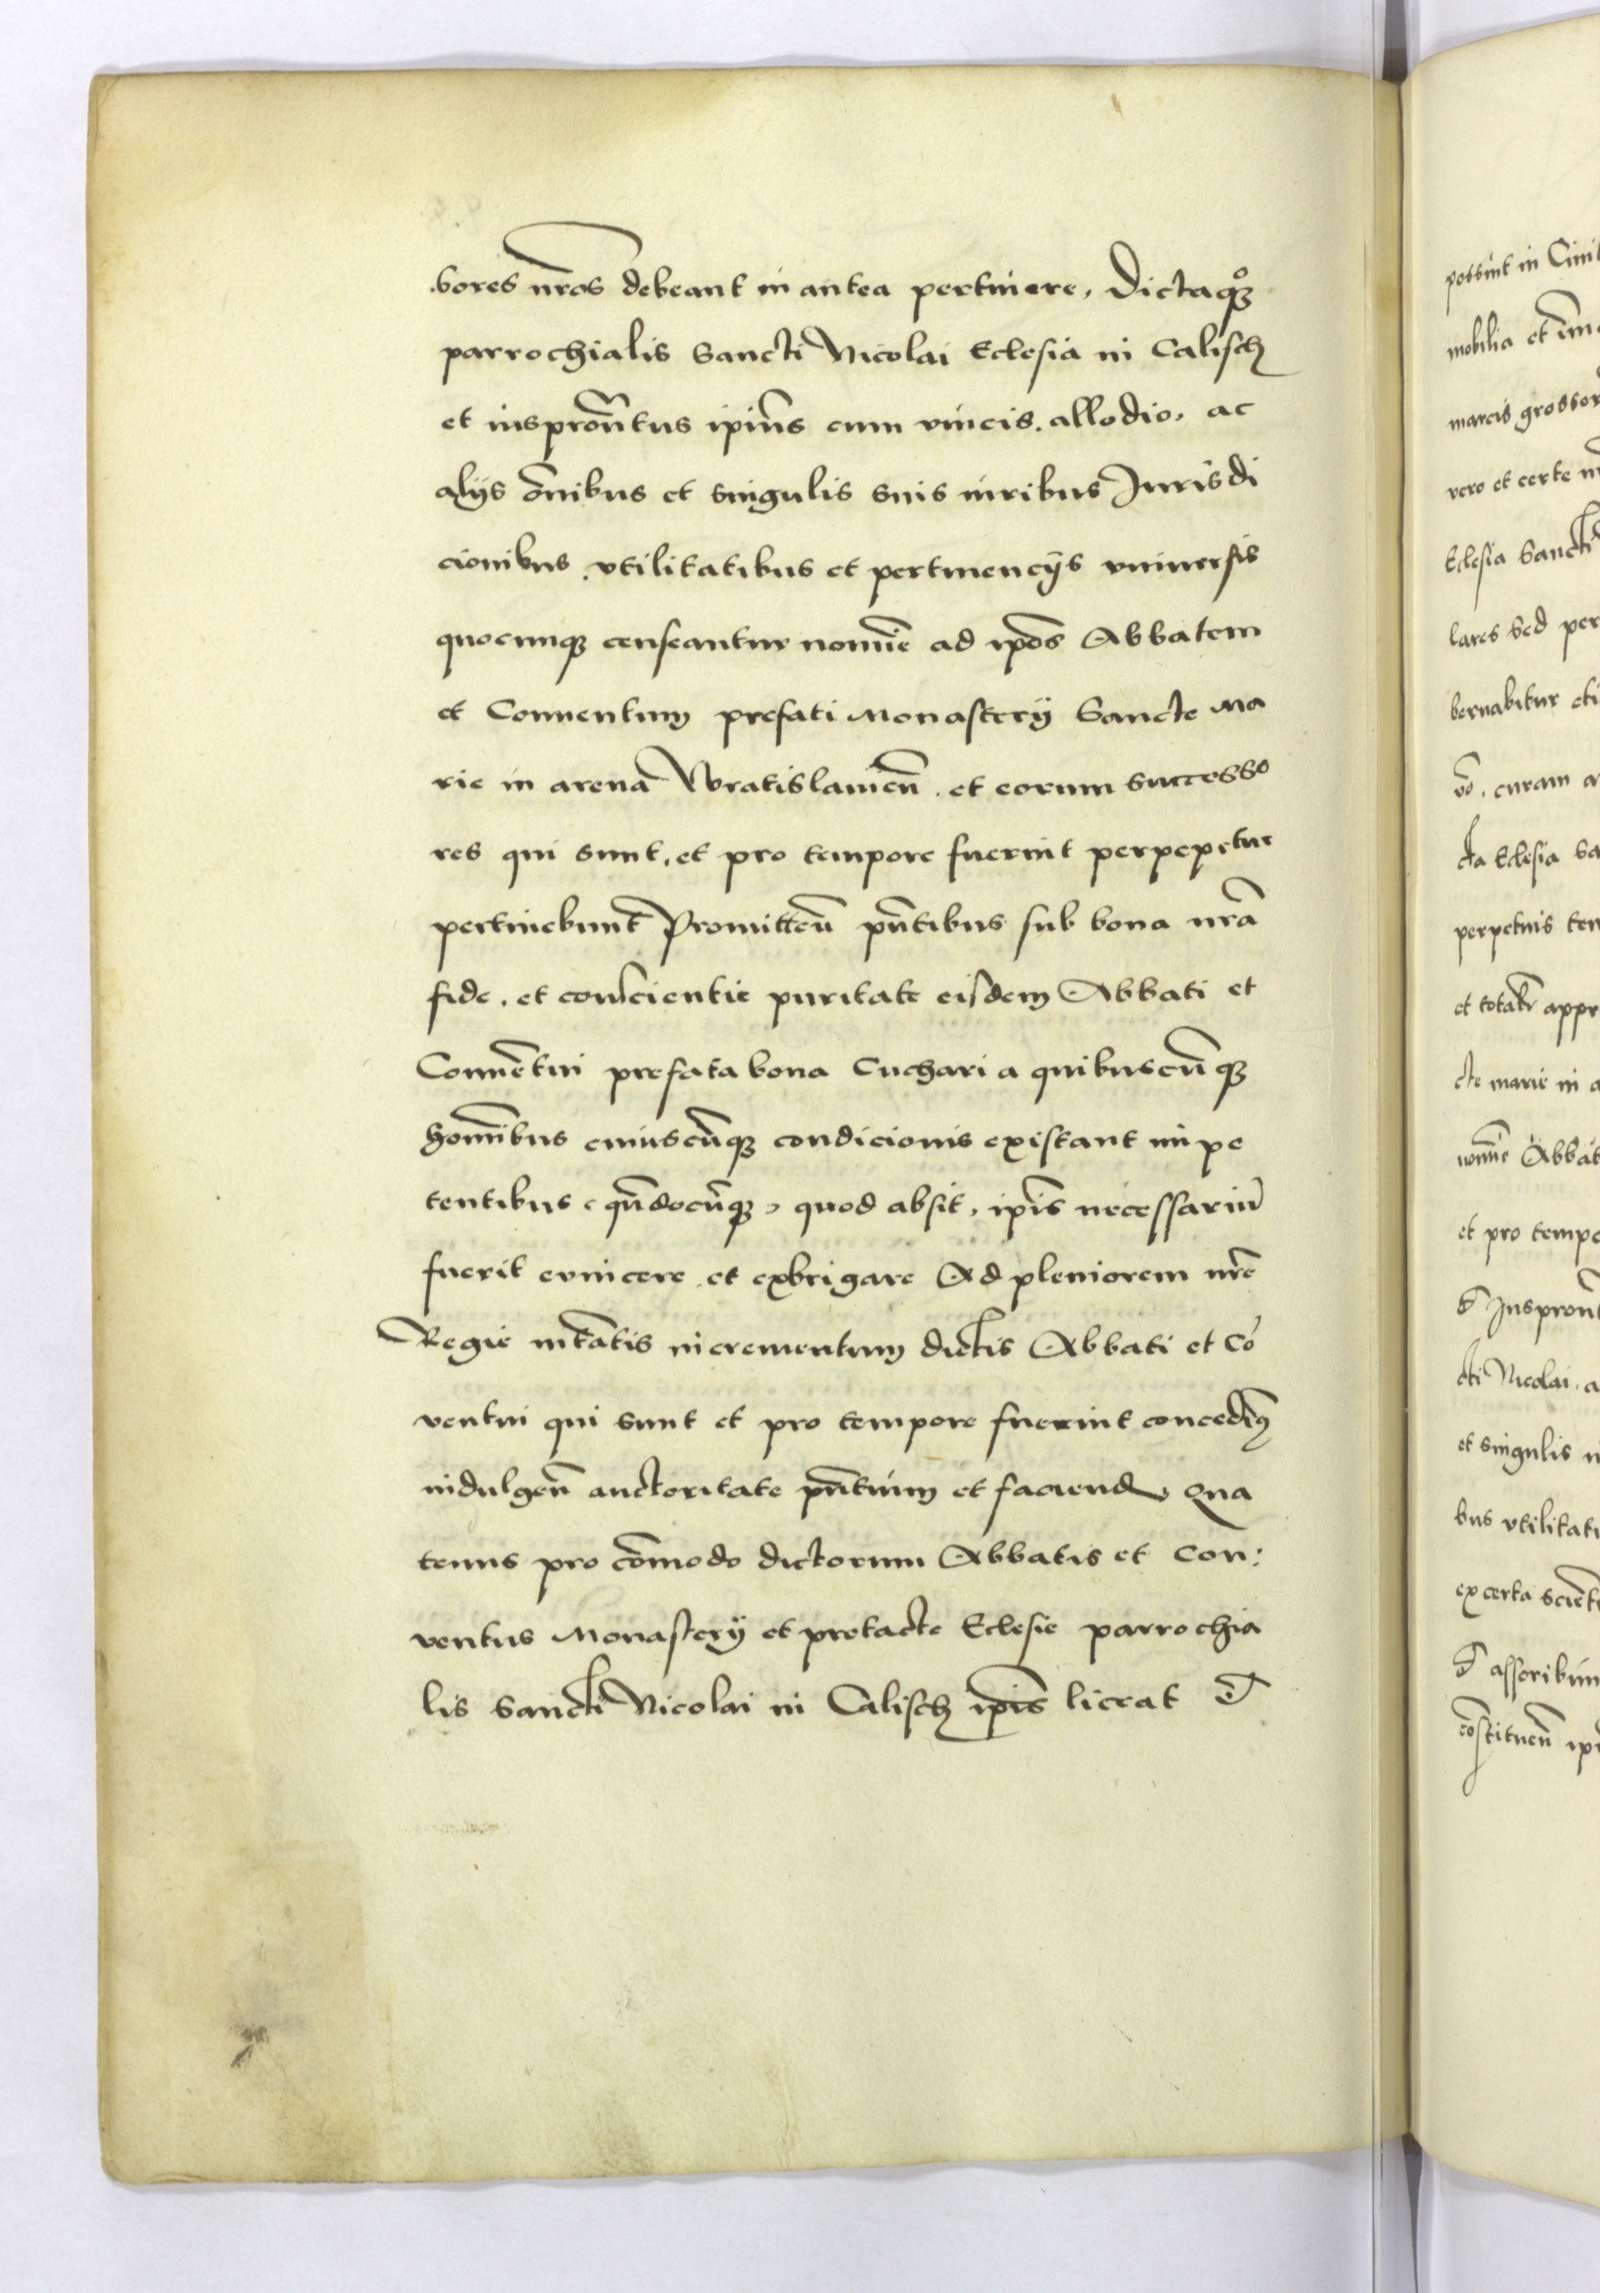 sores nr̄os debeant in antea pertinere, Dictaqꝫ
parrochialis Sancti Nicolai Eclesia in Calisch
et iuspr̄on̄tus ipiūs cum vineis. allodio, ac
alijs o̅nibus et singulis suis iuribus Jurisdi
cionibus, vtilitatibus et pertinencijs vniuersis
quocunqꝫ censeantur nomīe ad ip̄os Abbatem
et Conuentum prefati Monasterij Sancte Ma
rie in arena Wratislauien̄. et eorum successo
res qui sunt, et pro tempore fuerint perpepetue
pertinebunt Promitten̄ pn̄tibus sub bona nr̄a
fide, et consciencie puritate eisdem Abbati et
Conuētui prefata bona Cuchari a quibuscūqꝫ
homībus cuiuscūqꝫ condicionis existant impe
tentibus, qn̄docūqꝫ, quod absit, ip̄is necessariū
fuerit euincere et exbrigare Ad pleniorem nr̄e
Regie int̄atis incrementum dictis Abbati et Cō
ventui qui sunt et pro tempore fuerint concedīꝫ
indulgen̄ auctoritate pn̄tium et faciend, Qua
tenus pro cōmodo dictorum Abbatis et Con:
ventus Monasterij et pretacte Eclesie parrochia
lis Sancti Nicolai in Calisch ip̄is liceat Et
possint in
mobilia et
marcis
vero et certe
Eclesia Sancti
lares sed per
vō, curam
cta Eclesia
perpetuis
et
cte marie in
nomīe
et pro
cti Nicolai
et singulis
bus
ex certa